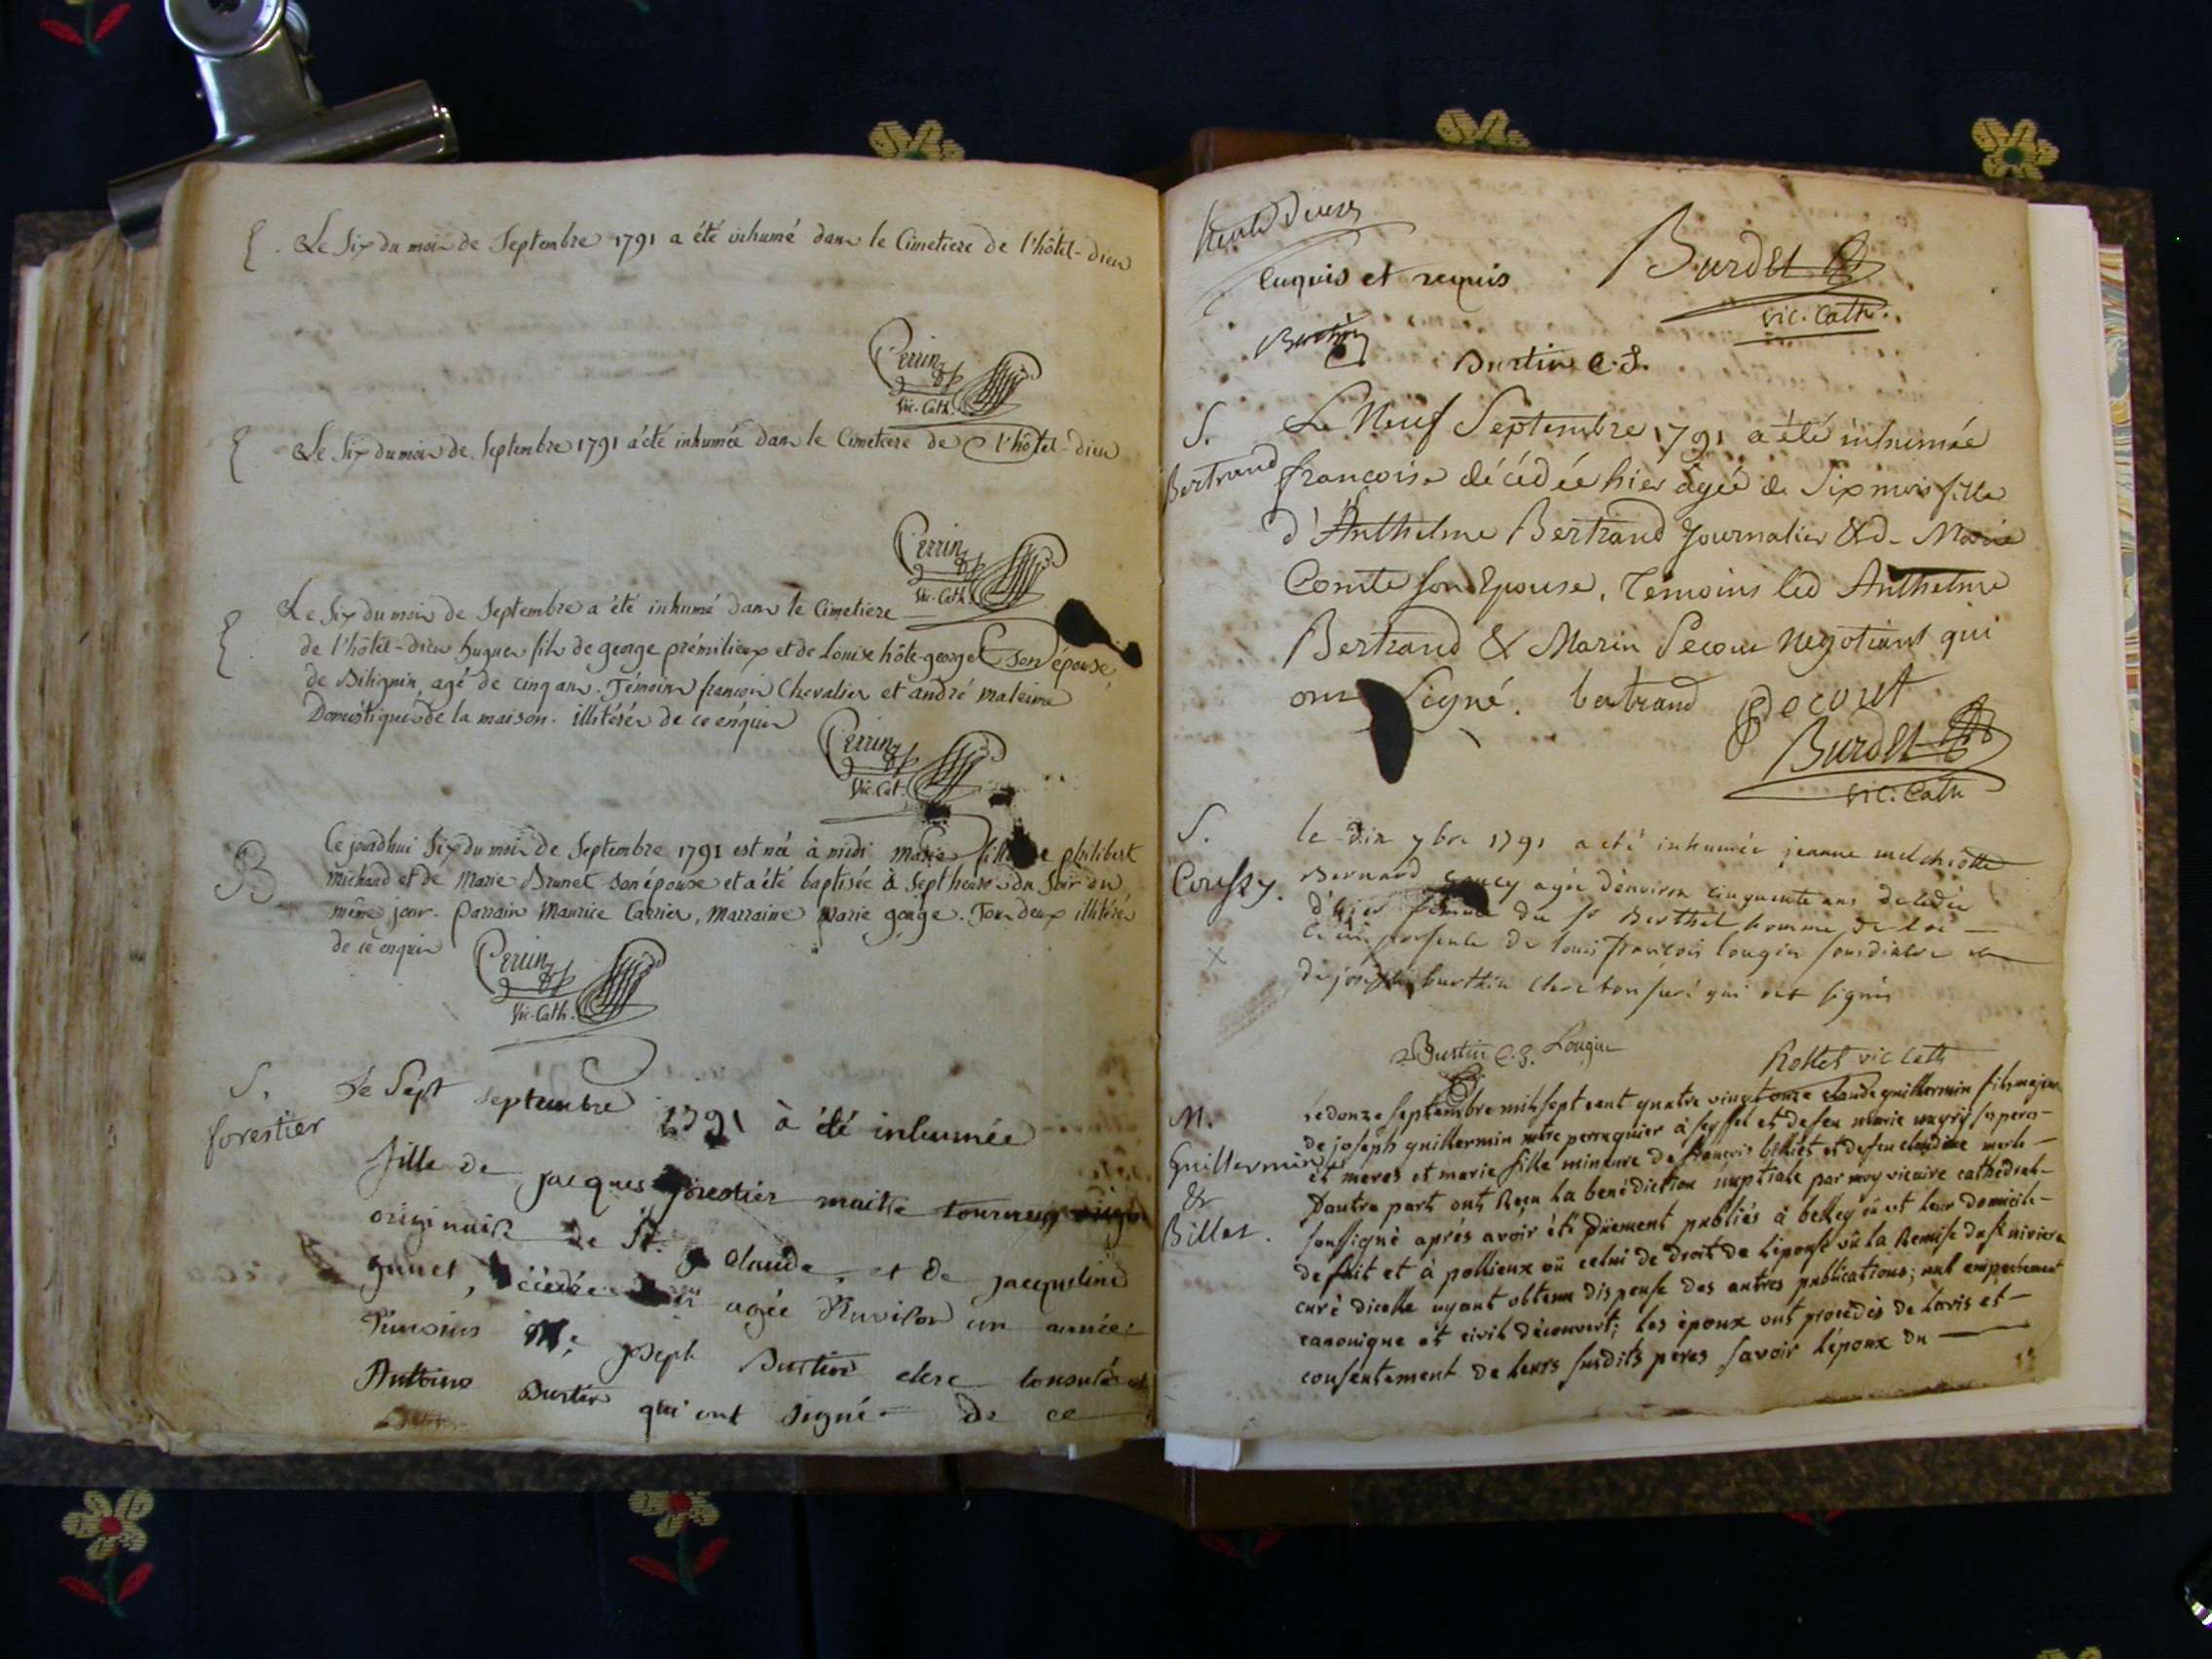 Le Six du mois de Septembre 1791 a été inhumé dans le Cimetiere de l'hôtel-dieu
Perrin
Vic. Cath.
Le Six du mois de Septembre 1791 a été inhumée dans le Cimetiere de l'hôtel-dieu
Perrin
Vic. Cath.
Le Six du mois de Septembre a été inhumé dans le Cimetiere
de l'hôtel-dieu hugues fils de george prémilieux et de Louise hôte-george son épouse
de Bilignin, agé de cinq ans. Témoins françois Chevalier et andré
Domestiques de la maison. illitérés de ce enquis
Perrin
Vic. Cat.
B
Ce jourdhui Six du mois de Septembre 1791 est née à midi Marie fille de philibert
michaud et de Marie Brunet son épouse et a été baptisée à Sept heures du soir du
même jour. parrain Maurice Carrier, marraine Marie goige. Tous deux illitérés
de ce enquis
Perrin
Vic. Cath.
S.
forestier
Le Sept Septembre 1791 à été inhumée
fille de jacques forestier maitre
originaire de St. Claude, et de jacqueline
agée d'environ un année
Témoins Mr joseph Burtin clerc tonsuré et
Anthine Burtin qui ont signé de ce
Enquis et requis
Burdet
vic. Cath.
Burtin C. T.
S.
Bertrand
Le Neuf Septembre 1791 a été inhumée
francoise décédée hier agée de Six mois fille
d'Anthelme Bertrand Journalier & de Marie
Comte son Epouse, Témoins led Anthelme
Bertrand & Marin Pecour Negotiant qui
ont Signé. bertrand Pecout
Burdet
vic. Cath
S.
Coussy.
le dix 7bre 1791 a été inhumée jeanne melchiotte
Bernard agée denviron cinquante ans decedée
d'hier femme du sr Berthet homme de loi
de louis françois lougin sousdiacre et
de joseph burthin clerc tonsuré qui ont signés
Burtin C. T. Lougin
Rollet vic Cath
M.
Guillermin
&
Billet.
Le douze septembre mil sept cent quatre vingt onze Claude guillermin fils majeur
de joseph guillermin mtre perruquier à seyssel et defeu marie
et meres et marie fille mineure de francois billiet et defeu claudine merle
Dautre part ont Reçu la benédiction nuptiale par moy vicaire cathedral
soussigné après avoir été Düement publiés à belley où est leur domicile
de fait et à pollieux où celui de Droit de lépouse vû la Remise du sr riviere
curé dicelle ayant obtenu dispense des autres publications; nul empechement
canonique et civil découvert; les époux ont procédés de lavis et
consentement de leurs susdits peres savoir lépoux du